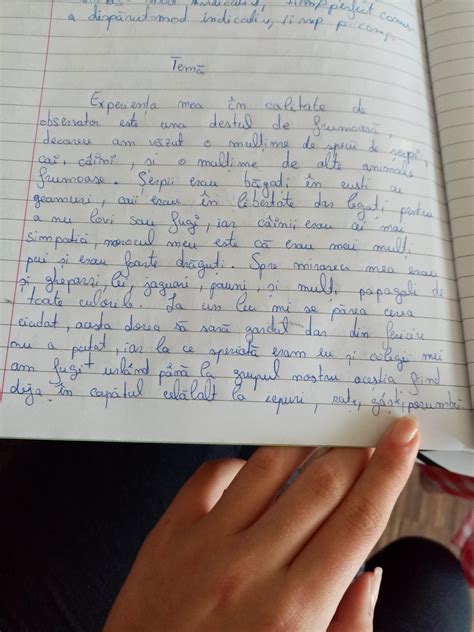 mod indicativ, timp perfect compus
a dispărut-mod indicativ, timp pf. comp.
Temă
Experiența mea în calitate de
observator este una destul de frumoasă,
deoarece am văzut o mulțime de specii de șerpi,
cai, câini, și o mulțime de alte animale
frumoase. Șerpii erau băgați în cuști cu
geamuri, caii erau în libertate dar legați pentru
a nu lovi sau fugi, iar câinii erau ai mai
simpatici, norocul meu este că erau mai mulți
pui și erau foarte drăguți. Spre mirarea mea erau
și gheparzi, lei, jaguari, pauni și mulți papagali de
toate culorile. La un leu mi se părea ceva
ciudat, acsta dorea să sară gardul dar din fericire
nu a putut, iar la ce speriată eram eu și colegii mei
am fugit urlând până la grupul nostru aceștia fiind
deja în capătul celălalt la iepuri, rațe, gâști, porumbei